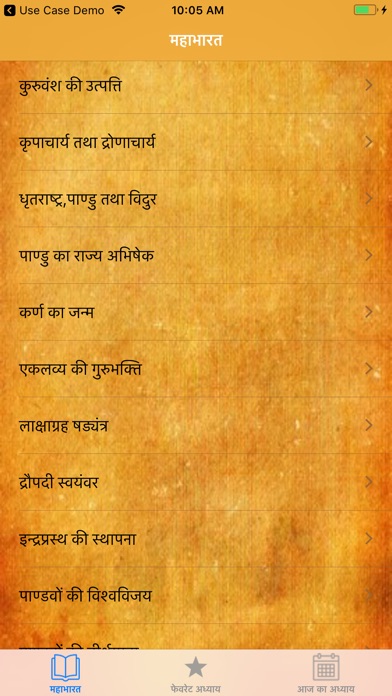 Use Case Demo 10:05 AM
महाभारत
कुरुवंश की उत्पत्ति
कृपाचार्य तथा द्रोणाचार्य
धृतराष्ट्र,पाण्डु तथा विदुर
पाण्डु का राज्य अभिषेक
कर्ण का जन्म
एकलव्य की गुरुभक्ति
लाक्षाग्रह षड्यंत्र
द्रौपदी स्वयंवर
इन्द्रप्रस्थ की स्थापना
पाण्डवों की विश्वविजय
महाभारत फेवरेट अध्याय आज का अध्याय